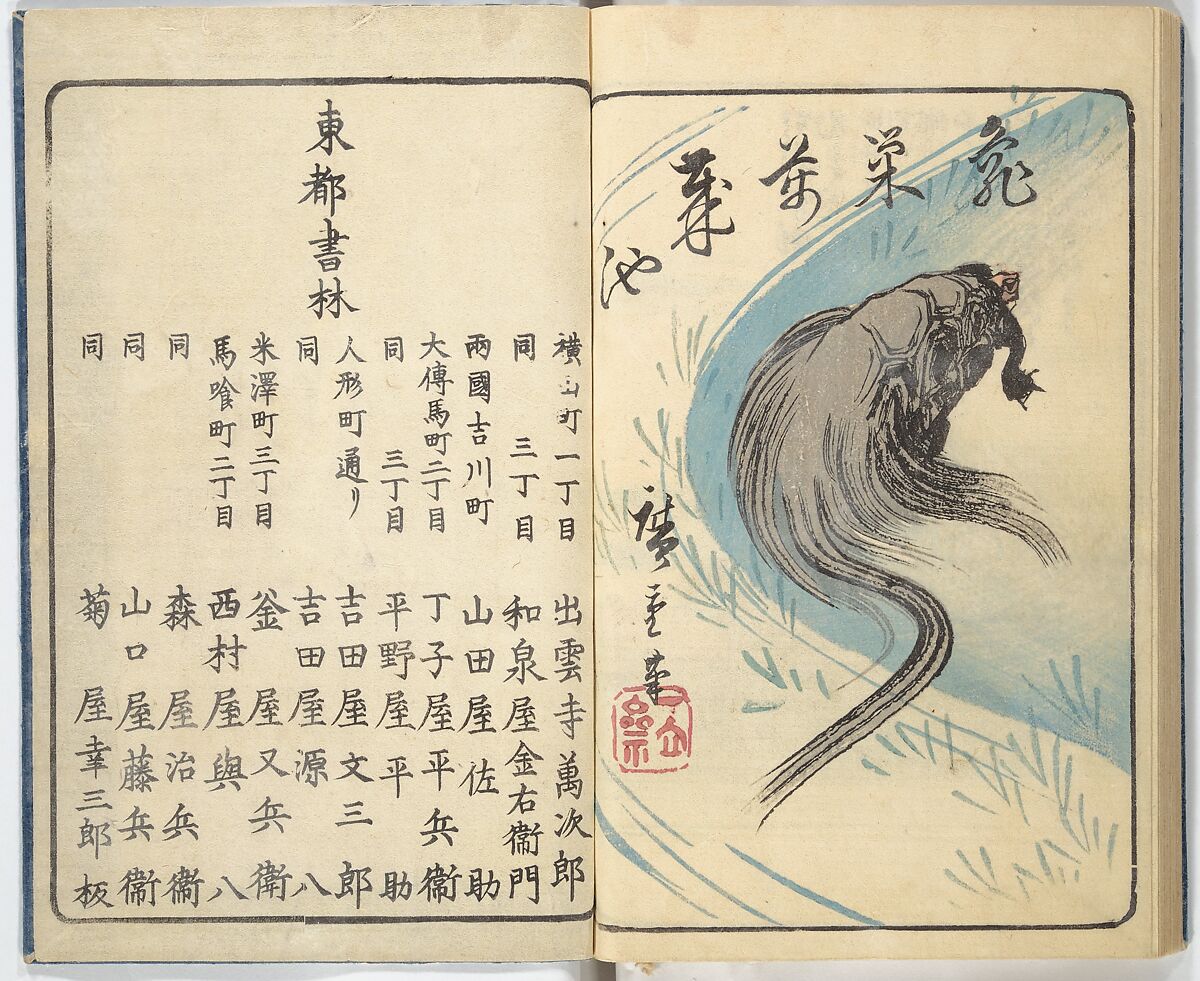 龜巣
池
廣重筆
東都書林
横山町一丁目 出雲寺萬次郎
同 三丁目 和泉屋金右衞門
兩國吉川町 山田屋佐助
大傳馬町二丁目 丁子屋平兵衞
同 三丁目 平野屋平助
人形町通り 吉田屋文三郎
同 吉田屋源八
米澤町三丁目 釜屋又兵衞
馬喰町二丁目 西村屋與八
同 森屋治兵衞
同 山口屋藤兵衞
同 菊屋幸三郎板